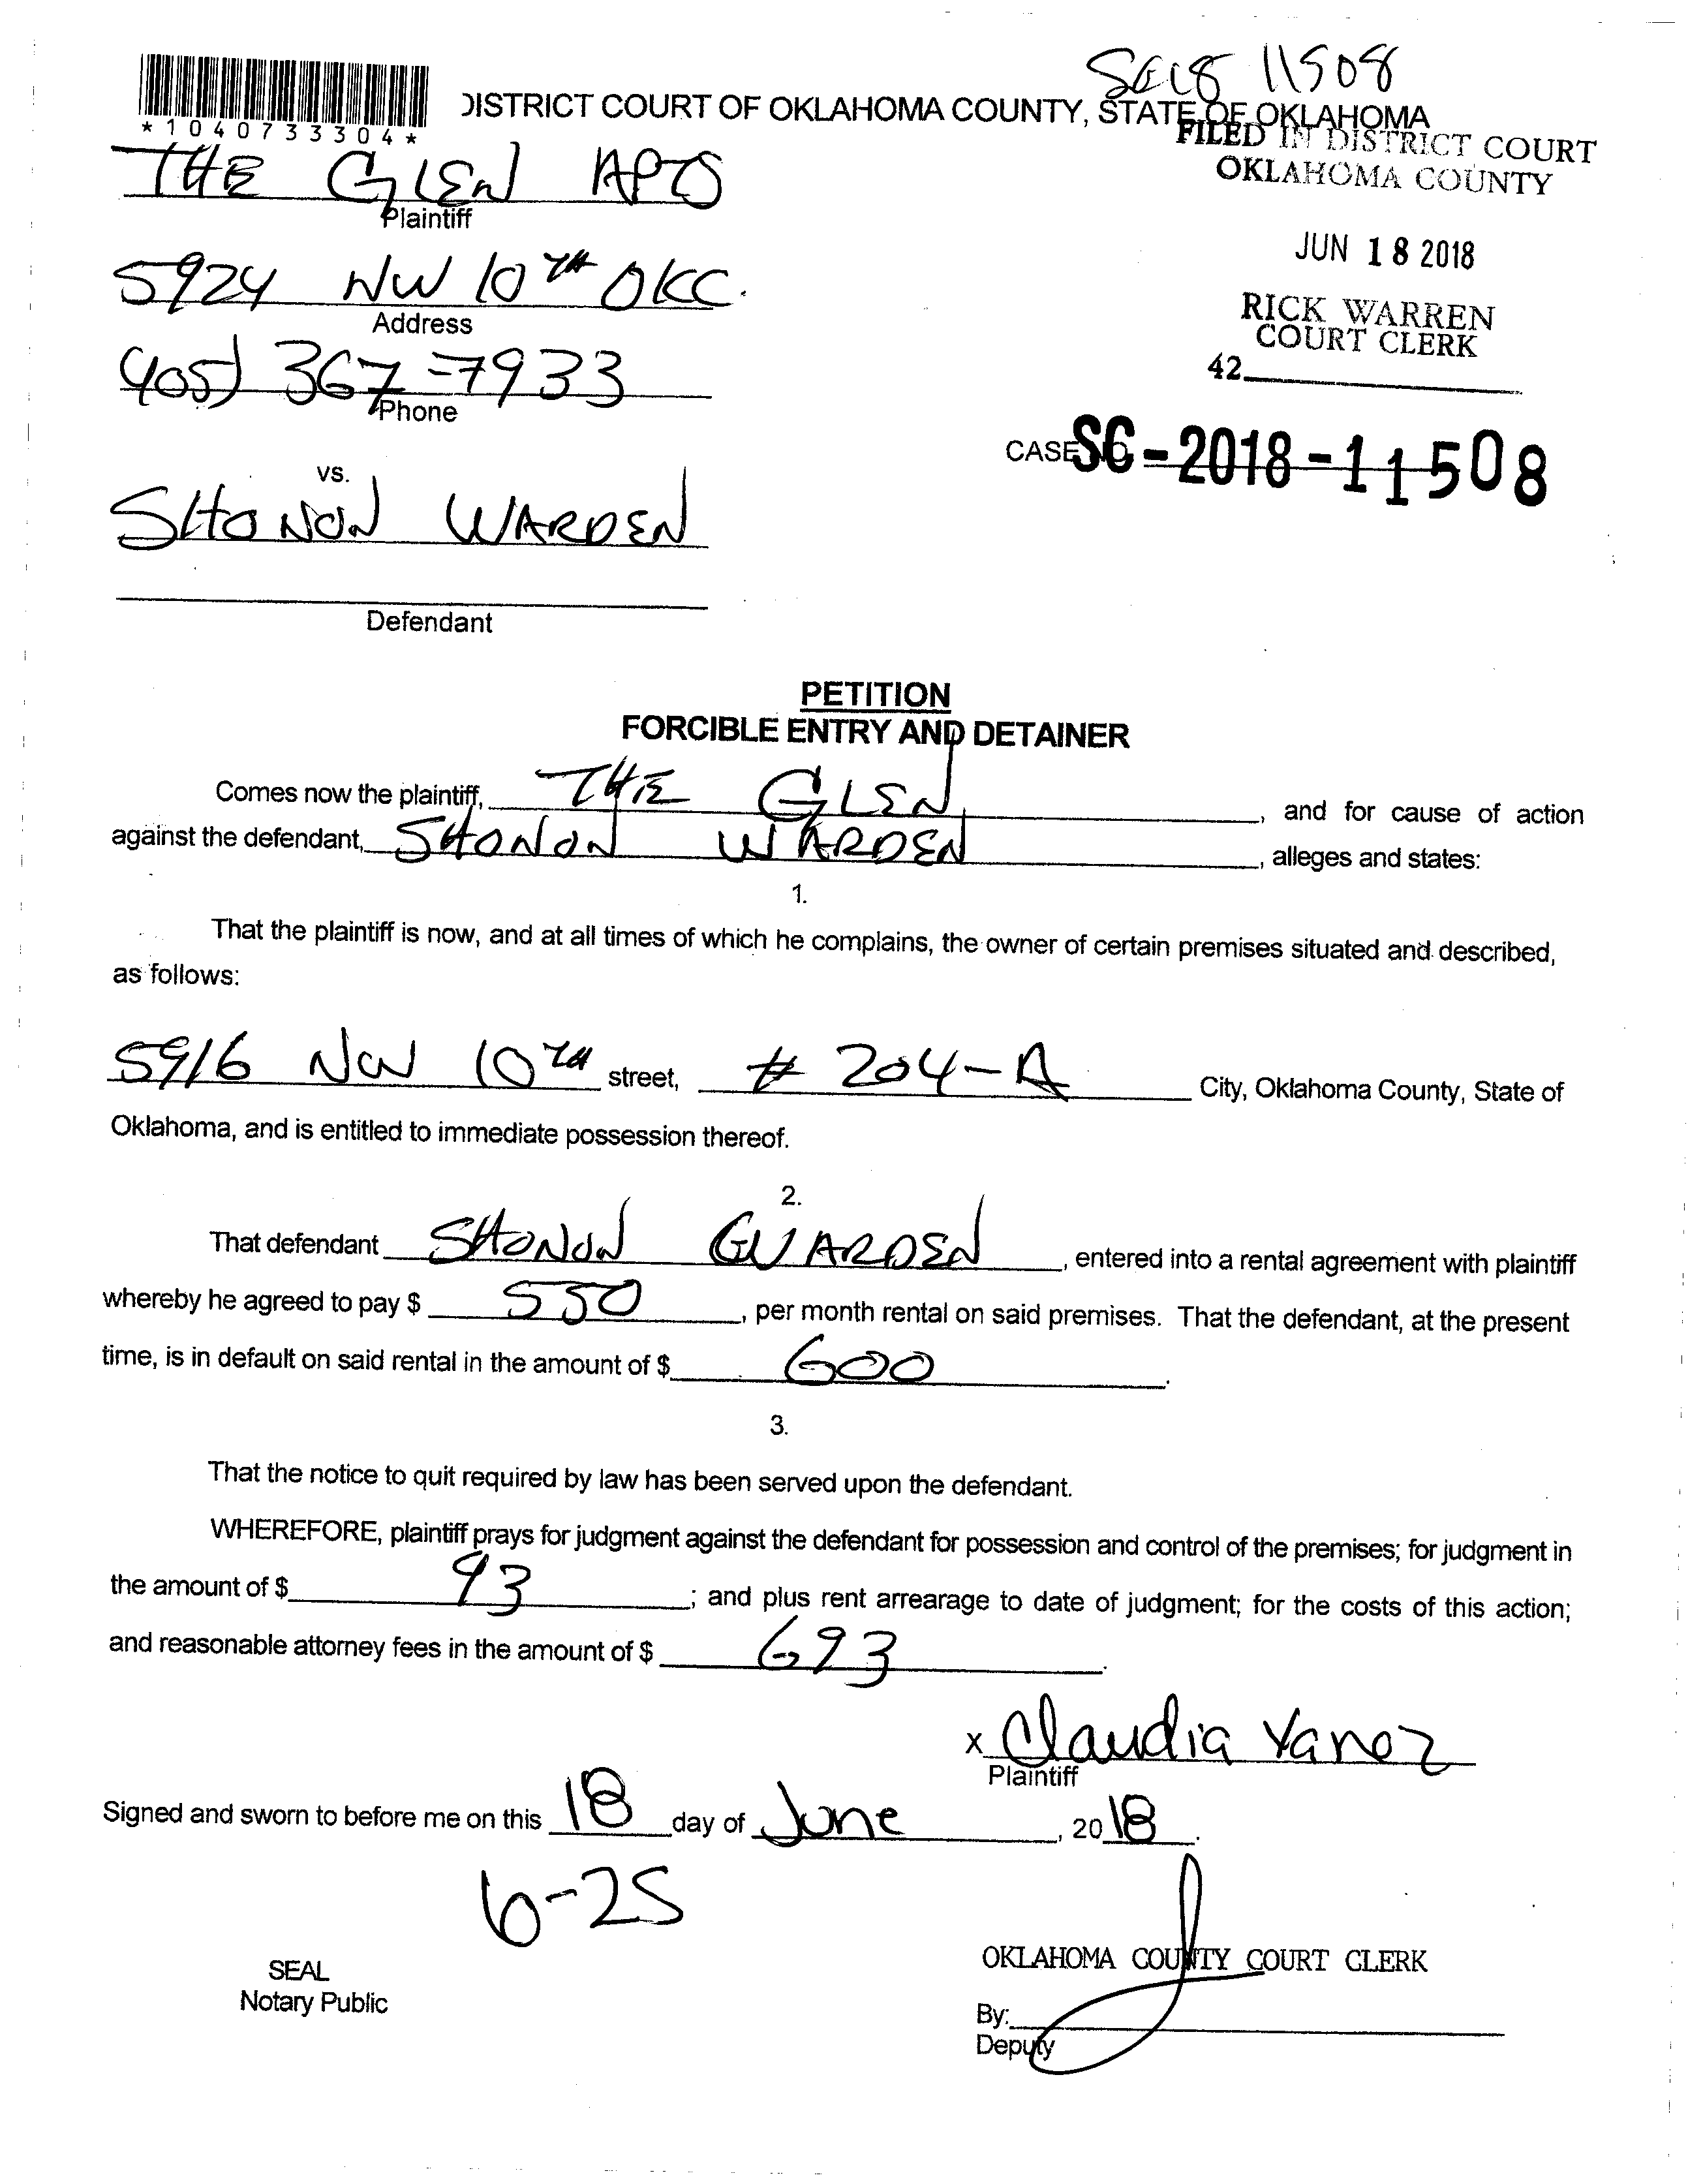 SC18 11508
*1040733304*
DISTRICT COURT OF OKLAHOMA COUNTY, STATE OF OKLAHOMA
FILED IN DISTRICT COURT
OKLAHOMA COUNTY
THE GLEN APTS
Plaintiff
JUN 18 2018
5924 NW 10TH OKC.
Address
RICK WARREN
COURT CLERK
42
405) 367-7933
Phone
CASE NO. SC-2018-11508
vs.
SHONON WARDEN
Defendant
PETITION
FORCIBLE ENTRY AND DETAINER
Comes now the plaintiff, THE GLEN, and for cause of action
against the defendant, SHONON WARDEN, alleges and states:
1.
That the plaintiff is now, and at all times of which he complains, the owner of certain premises situated and described,
as follows:
5916 NW 10TH street, # 204-A City, Oklahoma County, State of
Oklahoma, and is entitled to immediate possession thereof.
2.
That defendant SHONON GUARDEN, entered into a rental agreement with plaintiff
whereby he agreed to pay $ 550, per month rental on said premises. That the defendant, at the present
time, is in default on said rental in the amount of $ 600.
3.
That the notice to quit required by law has been served upon the defendant.
WHEREFORE, plaintiff prays for judgment against the defendant for possession and control of the premises; for judgment in
the amount of $ 93; and plus rent arrearage to date of judgment; for the costs of this action;
and reasonable attorney fees in the amount of $ 693.
x Claudia Yanez
Plaintiff
Signed and sworn to before me on this 18 day of June, 2018.
6-25
SEAL
Notary Public
OKLAHOMA COUNTY COURT CLERK
By:
Deputy